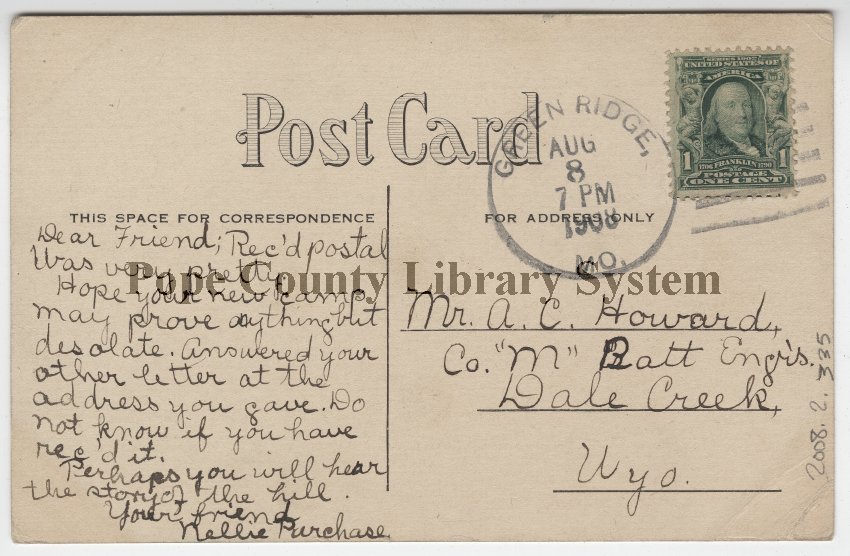 Post Card
GREEN RIDGE,
AUG
8
7 PM
1908
MO.
SERIES 1902
UNITED STATES OF
AMERICA
1 1
1706 FRANKLIN 1790
POSTAGE
ONE CENT
THIS SPACE FOR CORRESPONDENCE
FOR ADDRESS ONLY
Dear Friend; Rec'd postal
Was very pretty.
Hope your new camp
may prove anything but
desolate. Answered your
other letter at the
address you gave. Do
not know if you have
rec'd it.
Perhaps you will hear
the story of the hill.
Your friend
Nellie Purchase.
Mr. A. C. Howard,
Co. "M" 2 Batt Eng'rs.
Dale Creek,
Wyo.
2008.2.335
Pope County Library System